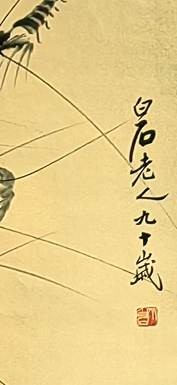 白石老人九十歲